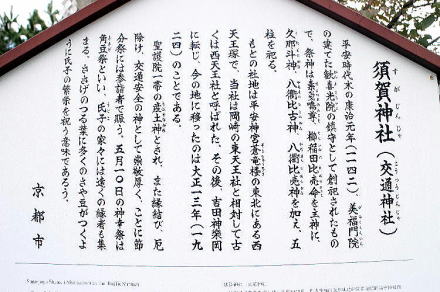 須賀神社（交通神社）
すがじんじゃ こうつうじんじゃ
平安時代末の康治元年（一一四二）、美福門院
の建てた歓喜光院の鎮守として創祀されたもの
で、祭神は素戔嗚尊、櫛稲田比売命を主神に、
久那斗神、八衢比古神、八衢比売神を加え、五
柱を祀る。
もとの社地は平安神宮蒼竜楼の東北にある西
天王塚で、当社は岡崎の東天王社と相対して古
くは西天王社と呼ばれた。その後、吉田神楽岡
に転じ、今の地に移ったのは大正十三年（一九
二四）のことである。
聖護院一帯の産土神とされ、また縁結び、厄
除け、交通安全の神として崇敬厚く、ことに節
分祭には参詣者で賑う。五月一〇日の神幸祭は
角豆祭といい、氏子の家々には遠くの縁者も集
まる。ささげのつる葉に多くのさや豆がつくよ
うに氏子の繁栄を祝う意味であろう。
京都市